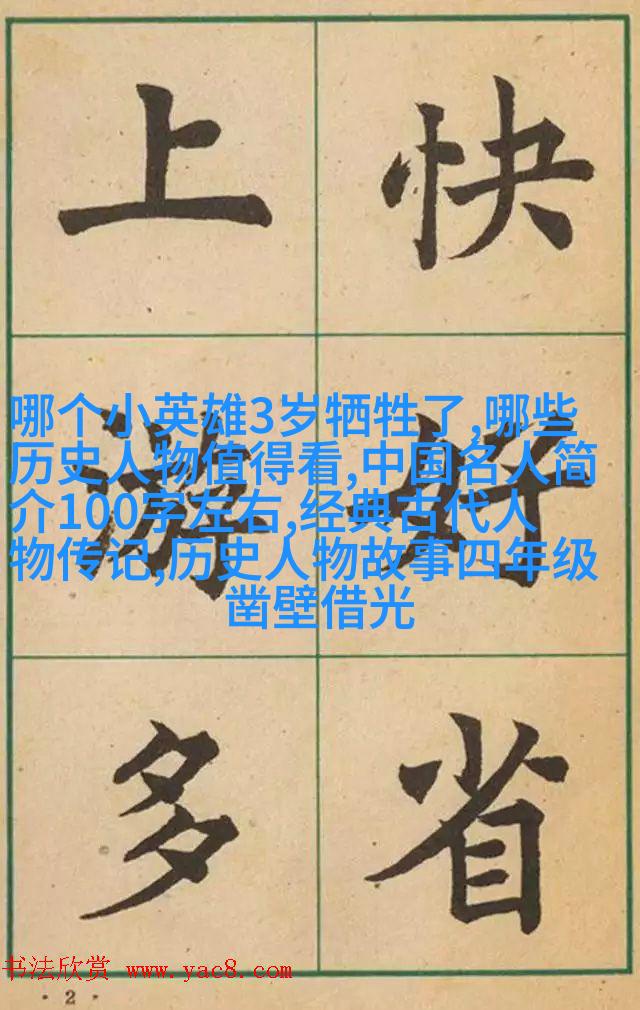 上游多
快好省
哪个小英雄3岁牺牲了,哪些
历史人物值得看,中国名人简
介100字左右,经典古代人
物传记,历史人物故事四年级
凿壁借光
书法欣赏 www.yac8.com
· 2 ·